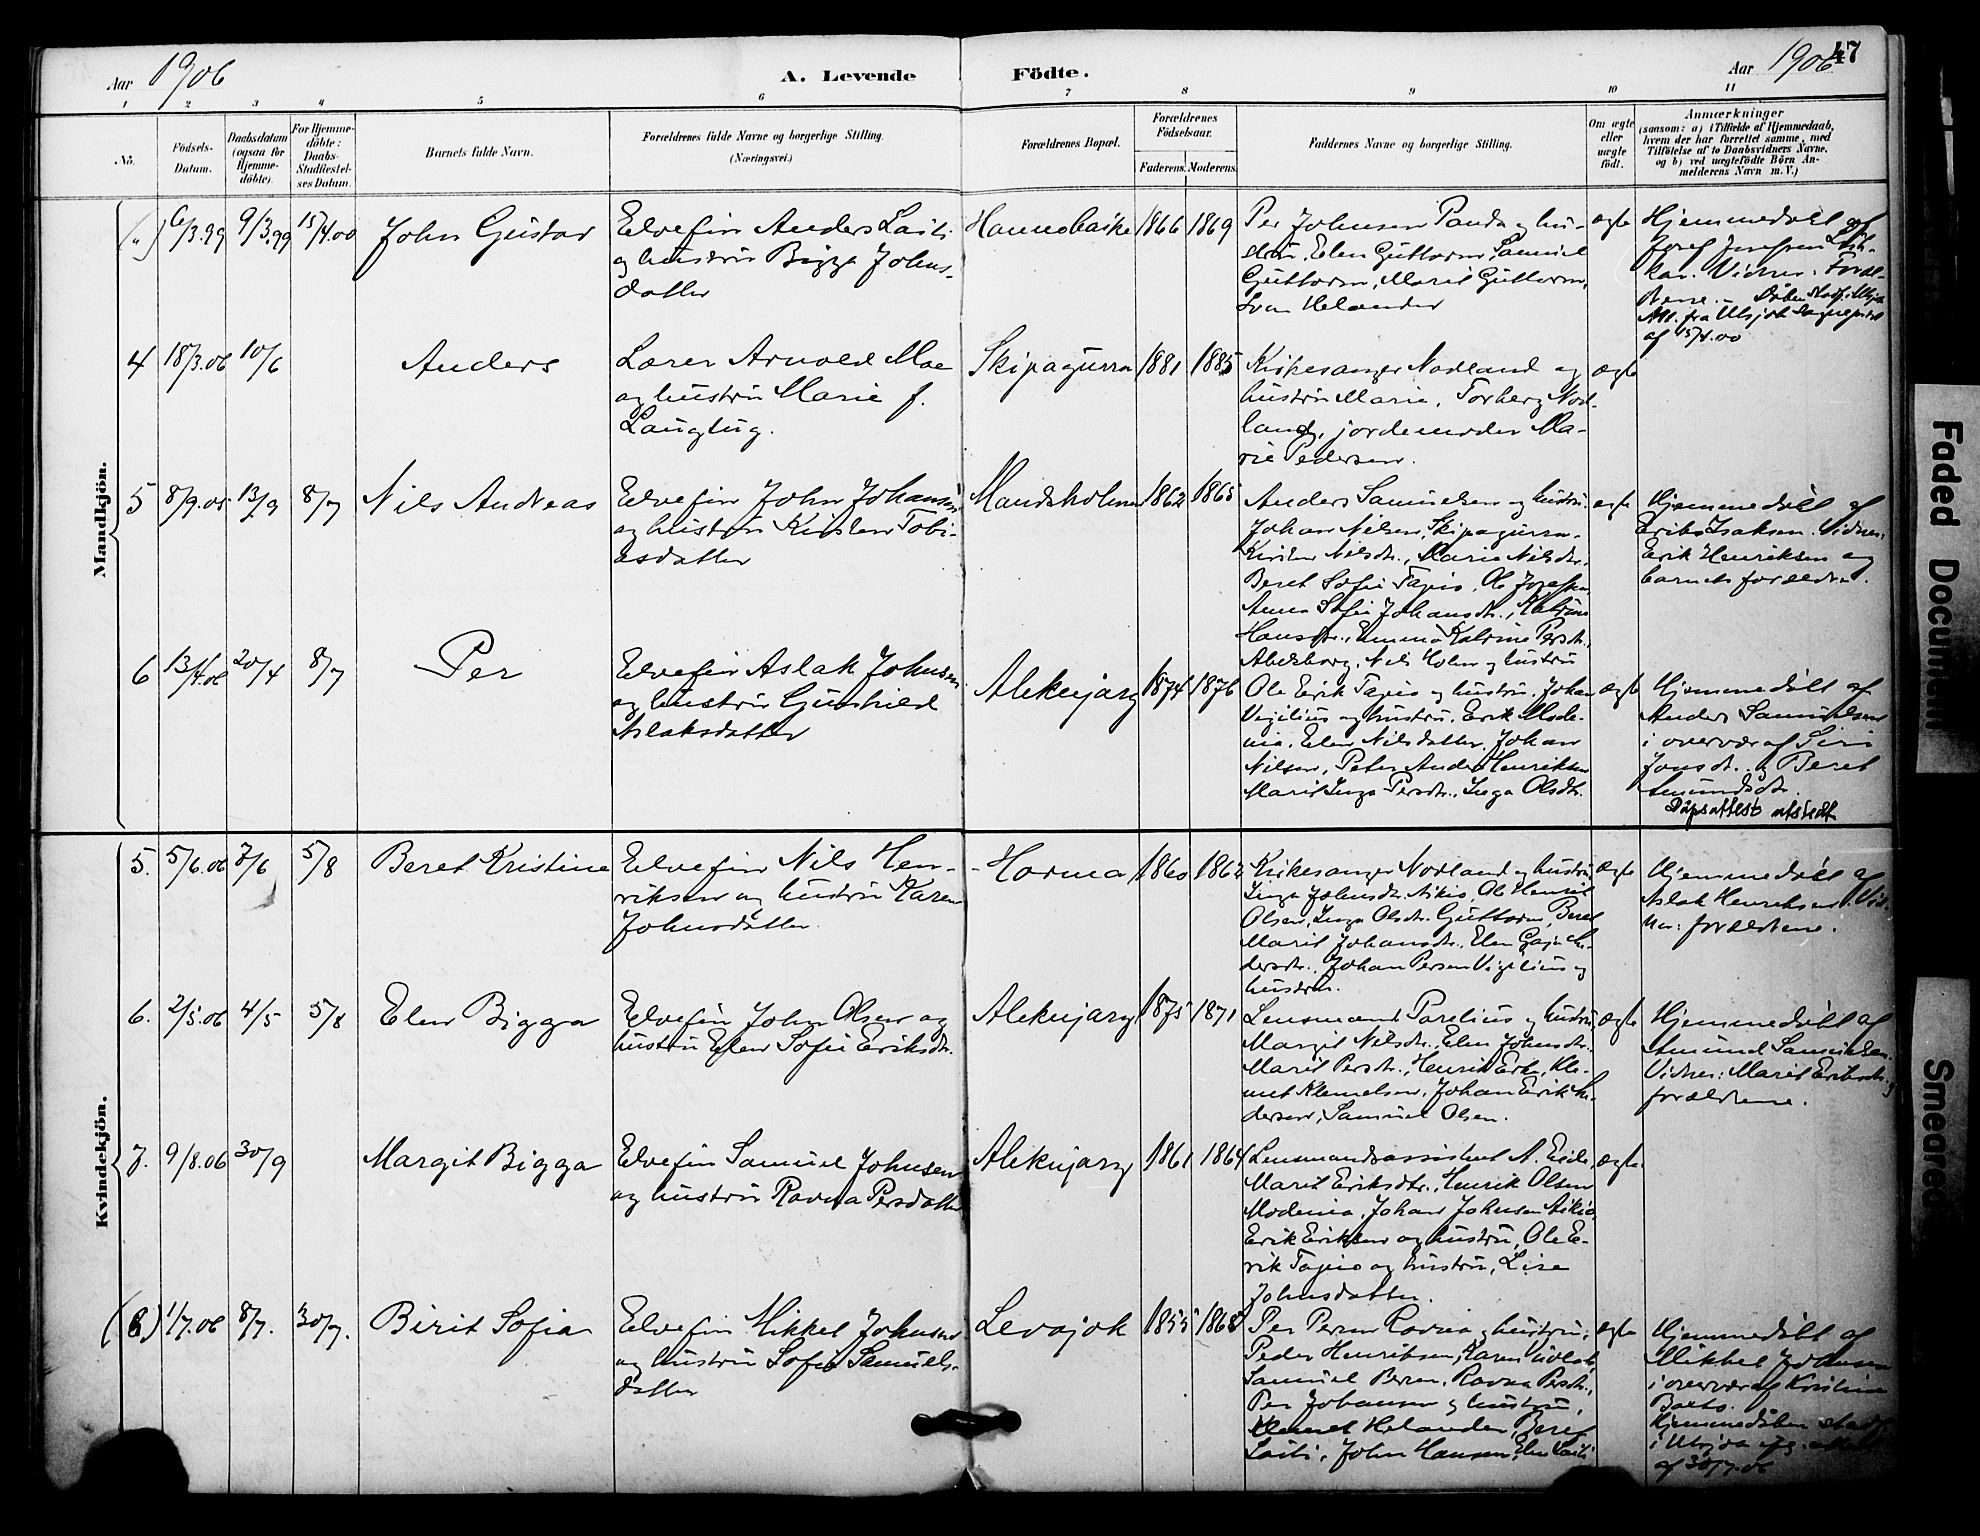 Aar 1906
A. Levende Födte.
Aar 1906
47
1 2 3 4 5 6 7 8 9 10 11
No.
Födsels-Datum.
Daabsdatum (ogsaa for Hjemme-döbte).
For Hjemme-döbte: Daabs-Stadfæstel-ses Datum.
Barnets fulde Navn.
Forældrenes fulde Navne og borgerlige Stilling.
(Næringsvei.)
Forældrenes Bopæl.
Forældrenes Födselsaar.
Faderens. Moderens.
Faddernes Navne og borgerlige Stilling.
Om ægte eller uægte födt.
Anmærkninger
(saasom: a) i Tilfælde af Hjemmedaab,
hvem der har forrettet samme, med
Tilföielse af to Daabsvidners Navne,
og b) ved uægtefödte Börn An-
melderens Navn m. V.)
Mandkjön.
(") 6/3.99 9/3.99 15/4.00 John Gustav
Elvefin Anders Laiti
og hustru Bigga Johns-
datter
1866 1869
Per Johnsen Panda og hu-
stru, Elen Guttorm, Samuel
Guttorm, Marit Guttorm,
Helander
ægte
Hjemmedöbt af
Vidner: Foræl-
af 15/4.00
4 18/3.06 10/6 Anders
Lærer Arnold Moe
og hustru Marie f.
Langlug.
Skipagurra 1881 1885
Kirkesanger Nordland og
hustru Marie, Torberg Nord-
land, jordemoder Ma-
rie Pedersen.
ægte
5 8/9.05 13/9 8/7 Nils Andreas
Elvefin John Johansen
og hustru Kirsten Tobi-
asdatter
Mandsholmen 1862 1865
Anders Samuelsen og hustru,
Johan Nilsen, Skipagurra,
Kirsten Nilsdtr., Marie Nilsdtr.,
Beret Sofie Tapio, Ole Josefsen,
Anna Sofie Johansdtr., Katrine
Hansdtr., Emma Katrine Persdtr.,
Nils Holm og hustru
ægte
Hjemmedöbt af
Erik Isaksen. Vidner:
Erik Henriksen og
barnets forældre.
6 13/4.06 20/4 8/7 Per
Elvefin Aslak Johnsen
og hustru Gunhild
Aslaksdatter
Aleknjarg 1874 1876
Ole Erik Tapio og hustru, Johan
Vigilius og hustru, Erik Mode-
nia, Elen Nilsdatter, Johan
Nilsen, Peter Anders Henriksen
Marit Inga Persdtr., Inga Olsdtr.
ægte
Hjemmedöbt af
Anders Samuelsen
i overvær af Siri
Jonsdtr. og Beret
Amundsdtr.
Dåpsattest utstedt
Kvindekjön.
5. 5/6.06 7/6 5/8 Beret Kristine
Elvefin Nils Hen-
riksen og hustru Karen
Johnsdatter
Horma 1860 1862
Kirkesanger Nordland og hustru,
Inga Johnsdtr. Aikio, Ole Henrik
Olsen, Inga Olsdtr. Guttorm, Beret
Marit Johansdtr., Elen Gaja An-
dersdtr., Johan Persen Vigilius og
hustru.
ægte
Hjemmedöbt af
Aslak Henriksen. Vid-
ner: forældrene.
6. 2/5.06 4/5 5/8 Elen Bigga
Elvefin John Olsen og
hustru Elen Sofie Eriksdtr.
Aleknjarg 1875 1871
Lensmand Parelius og hustru,
Margit Nilsdtr., Elen Johnsdtr.
Marit Persdtr., Henrik Erk., Kle-
met Klemetsen, Johan Erik An-
dersen, Samuel Olsen.
ægte
Hjemmedöbt af
Amund Samuelsen.
Vidner: Marit Eriksdtr. og
forældrene.
7. 9/8.06 30/9 Margit Bigga
Elvefin Samuel Johnsen
og hustru Ravna Persdatter
Aleknjarg 1861 1864
Lensmandsassistent A. Eide,
Marit Eriksdtr., Henrik Olsen
Modenia, Johan Johnsen Aikio,
Erik Eriksen og hustru, Ole E-
rik Tapio og hustru, Lise
Johnsdatter.
ægte
(8.) 1/7.06 8/7. 30/7. Birit Sofia
Elvefin Mikkel Johnsen
og hustru Sofie Samuels-
datter
Levajok 1855 1868
Per Persen Ravna og hustru,
Peder Henriksen, Karen
Samuel Persen, Ravna Persdtr.,
Per Johansen og hustru,
Klemet Helander, Beret
Laiti, John Hansen, Elen Laiti
ægte
Hjemmedöbt af
Mikkel Johnsen
i overvær af Kristine
Balto.
Hjemmedåben stadf.
i Utsjok
af 30/7.06
Faded Document
Smeared